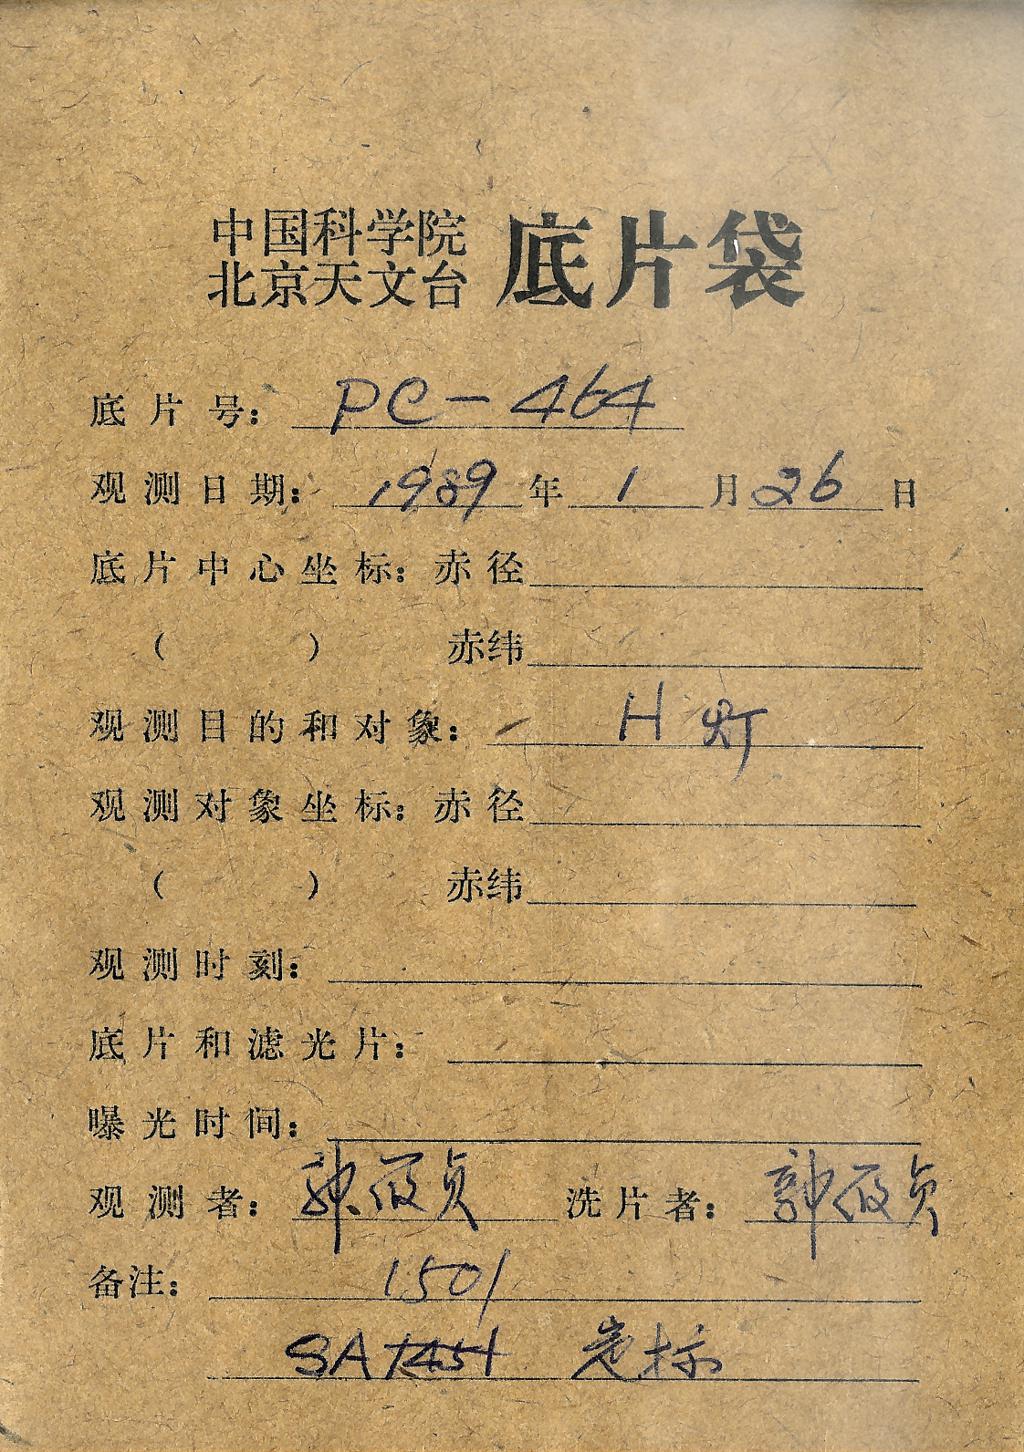 中国科学院
北京天文台 底片袋
底片号: PC-464
观测日期: 1989年 1月26日
底片中心坐标: 赤径
( ) 赤纬
观测目的和对象: H 灯
观测对象坐标: 赤径
( ) 赤纬
观测时刻:
底片和滤光片:
曝光时间:
观测者: 贞 洗片者: 贞
备注: 1501
SA 定标